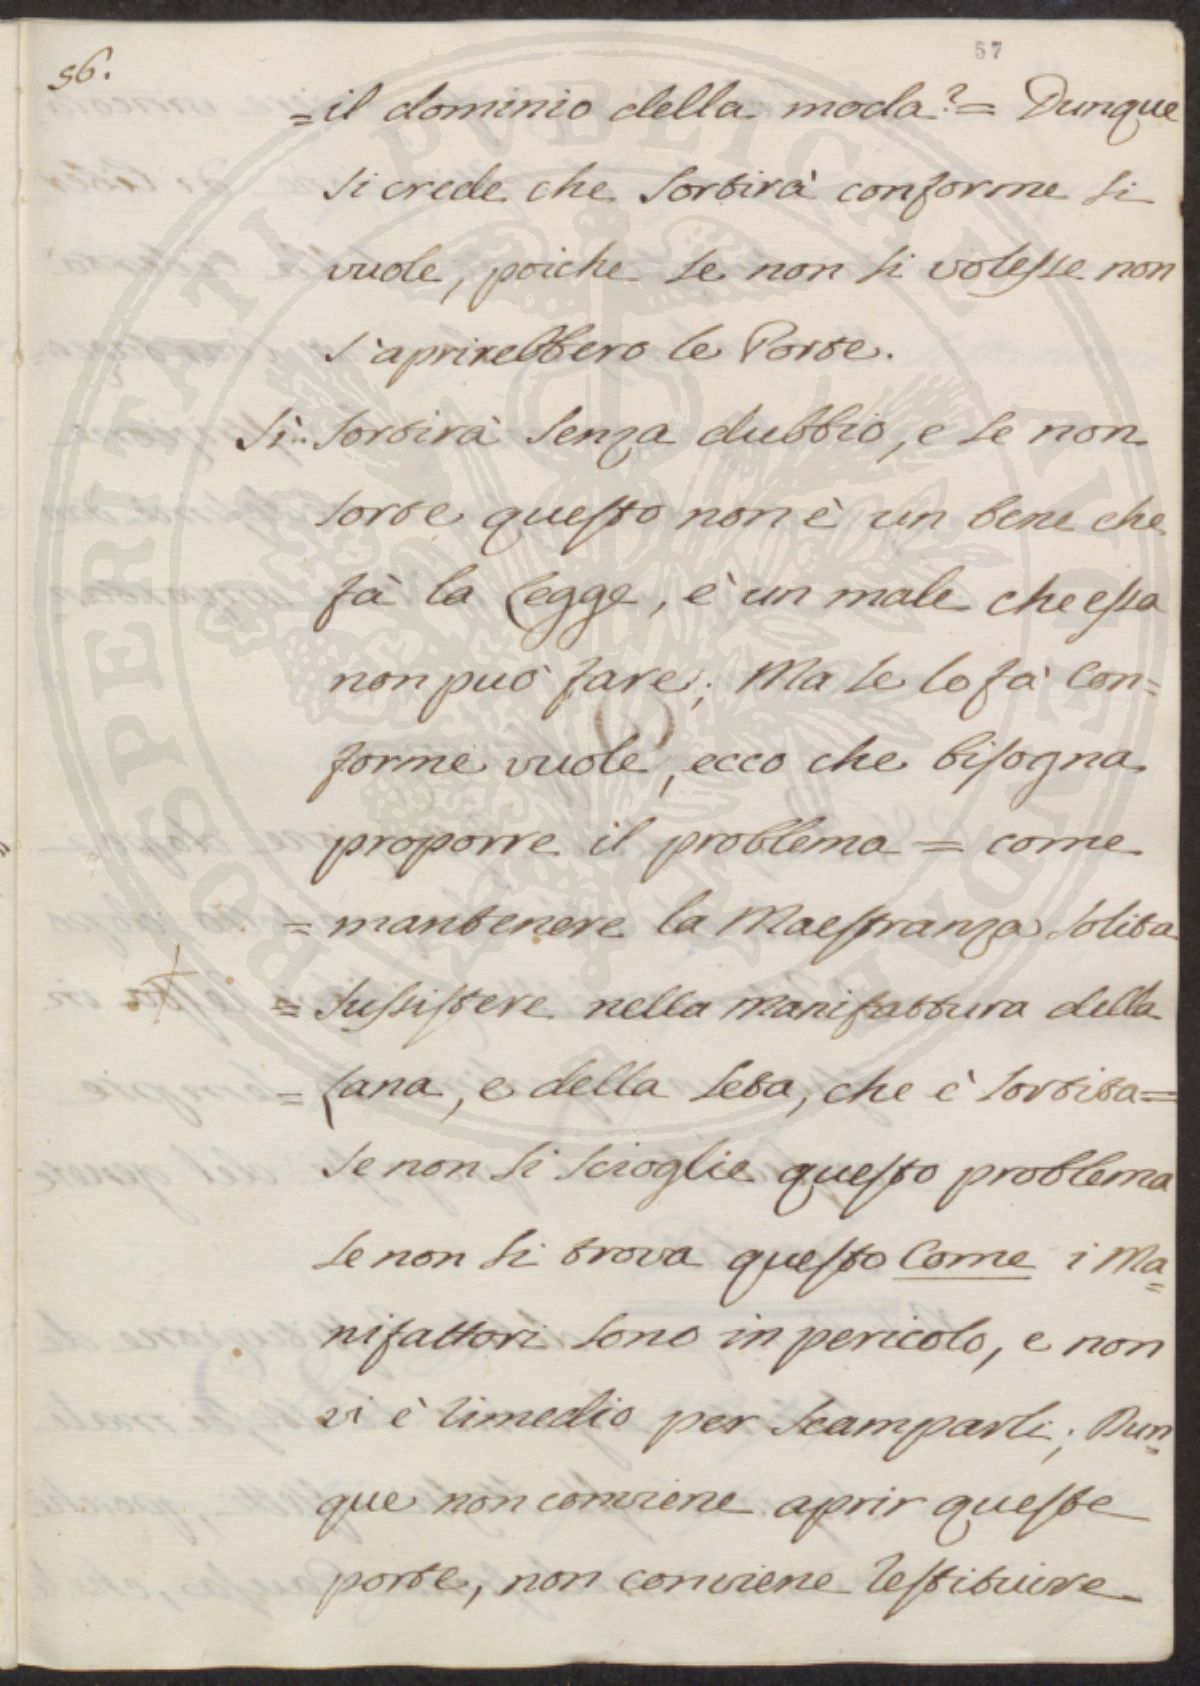 56.
57
=il dominio della moda?= Dunque
si crede che sortirà conforme si
vuole, poiche se non si volesse non
s'aprirebbero le Porte.
Sì.. sortirà senza dubbio, e se non
sorte questo non è un bene che
fà la Legge, è un male che essa
non può fare; Ma se lo fà Con=
forme vuole, ecco che bisogna
proporre il problema = come
= mantenere la Maestranza solita
= sussistere nella manifattura della
= Lana, e della seta, che è sortita=
Se non si scioglie questo problema
se non si trova questo Come i Ma=
nifattori sono in pericolo, e non
vi è rimedio per scamparli; Dun=
que non conviene aprir queste
porte, non conviene restituire
PROSPERITATI PUBLICAE AUGENDAE